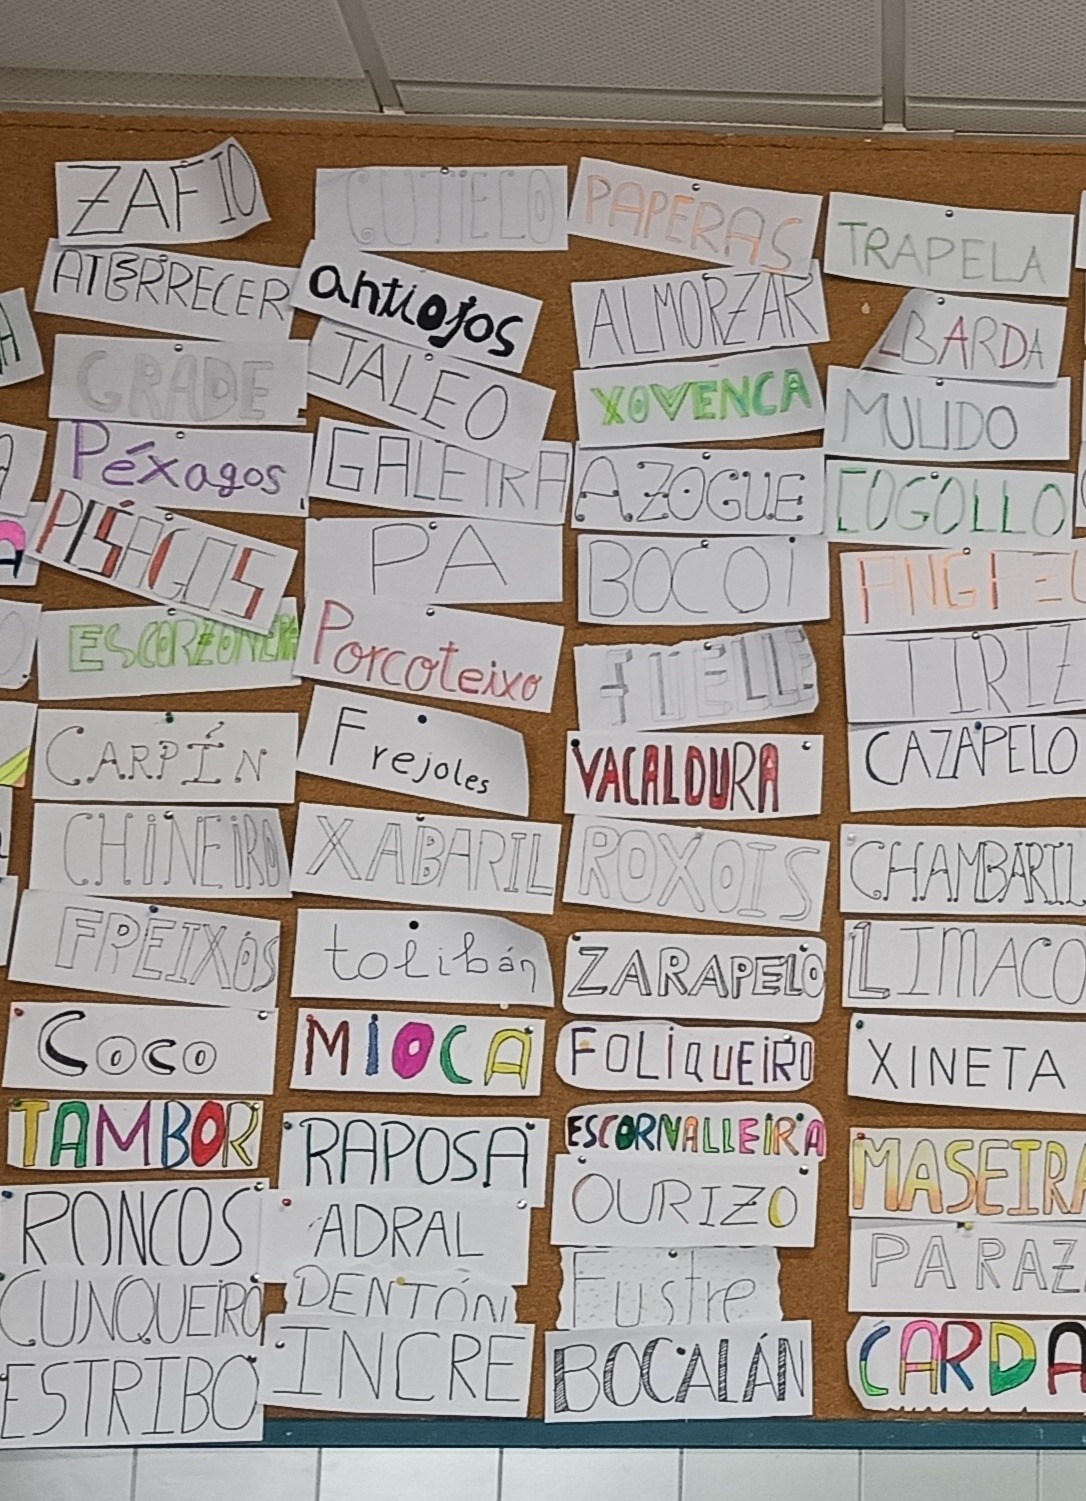 ZAFIO
CUTELO
PAPERAS
TRAPELA
ATERRECER
antiojos
ALMORZAR
BARDA
GRADE
JALEO
XOVENCA
MULIDO
Péxagos
GALEIRA
AZOGUE
COGOLLO
PÉSAGOS
PA
BOCOI
ESCORZONEIRA
Porcoteixo
FUELLE
TIRIZ
CARPÍN
Frejoles
VACALOURA
CAZAPELO
CHINEIRO
XABARIL
ROXOIS
CHAMBARIL
FREIXÓS
tolibán
ZARAPELO
LIMACO
COCO
MIOCA
FOLIQUEIRO
XINETA
TAMBOR
RAPOSA
ESCORNALLEIRA
MASEIRA
RONCOS
ADRAL
OURIZO
PARAZ
CUNQUEIRO
DENTÓN
Fustre
CARDA
ESTRIBO
INCRE
BOCALÁN